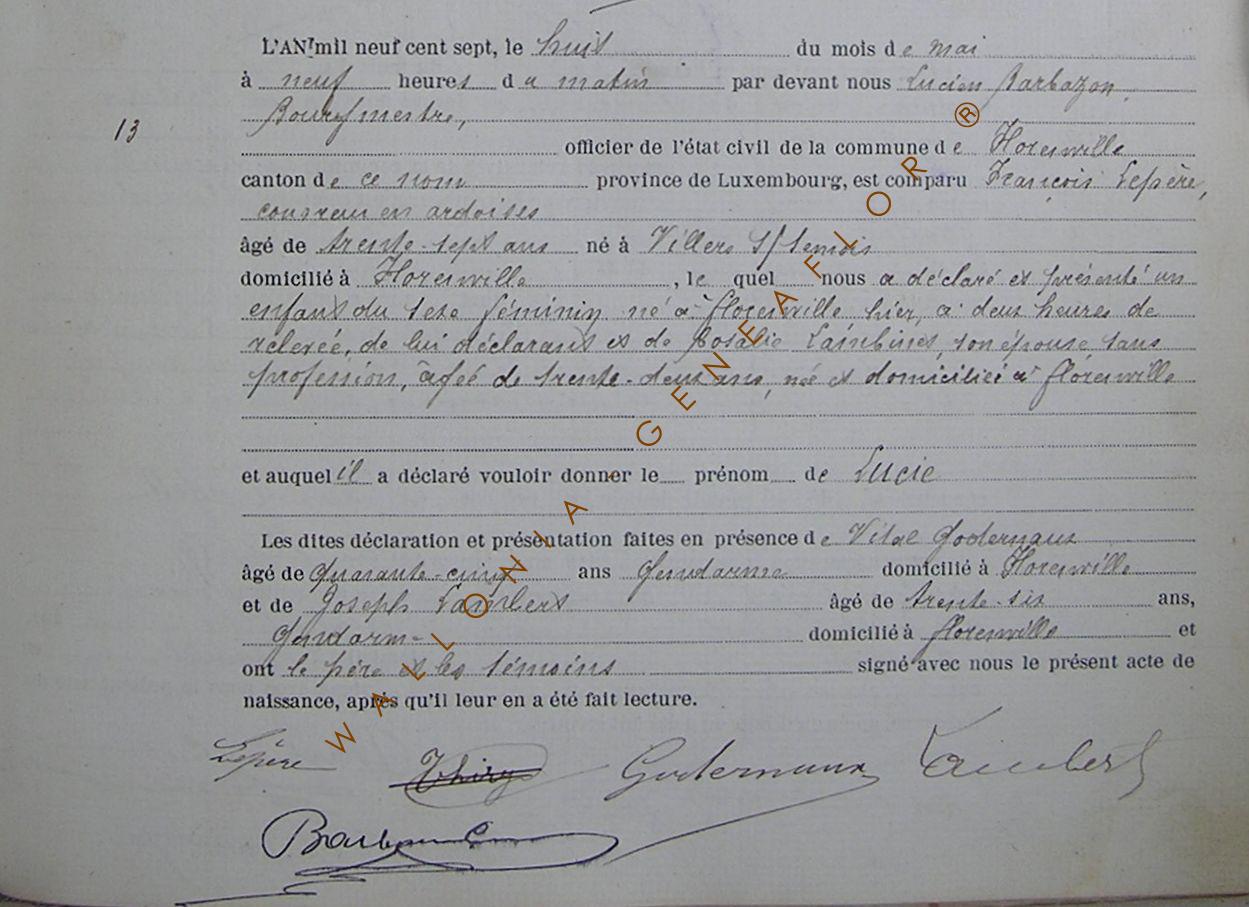 L'AN mil neuf cent sept, le huit du mois de mai
à neuf heures du matin par devant nous Lucien Barbazon,
Bourgmestre,
13
officier de l'état civil de la commune de Florenville
canton de ce nom province de Luxembourg, est comparu François Lepère,
couvreur en ardoises
âgé de trente-sept ans né à Villers s/Semois
domicilié à Florenville, le quel nous a déclaré et présenté un
enfant du sexe féminin né à Florenville hier, à deux heures de
relevée, de lui déclarant et de Rosalie son épouse, sans
profession, âgée de trente-deux ans, née et domiciliée à Florenville
et auquel il a déclaré vouloir donner le prénom de Lucie
Les dites déclaration et présentation faites en présence de Vital Godernaux
âgé de quarante-cinq ans Gendarme domicilié à Florenville
et de Joseph Lambert âgé de trente-six ans,
Gendarme domicilié à Florenville et
ont le père et les témoins signé avec nous le présent acte de
naissance, après qu'il leur en a été fait lecture.
Lepère Thiry Godernaux Lambert
Barbazon
WALLONIA GENEAFLOR ®